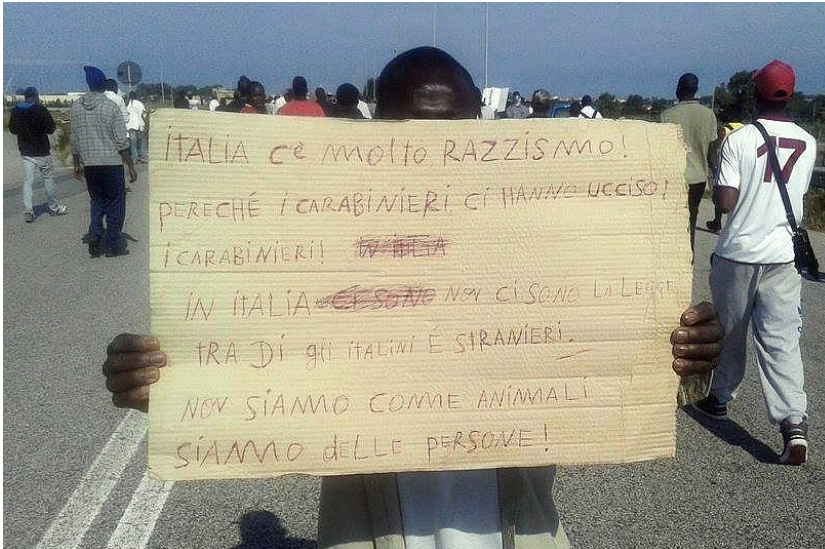 ITALIA C'e molto RAZZISMO!
PERECHÉ i CARABINIERI CI HANNO UCCISO!
i CARABINIERI! IN ITALIA
IN ITALIA CI SONO NON CI SONO LA LEGGE
TRA DI gli iTALINI É STRANIERI.
NON SIAMO COME ANIMALI
SIAMO delle PERSONE!
17